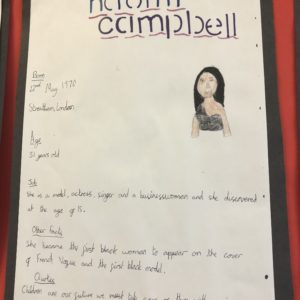 naomi
campbell
Born
22nd May 1970
Streatham, London
Age
51 years old
Job
She is a model, actress, singer and a businesswoman and she discovered
at the age of 15.
Other facts
She became the first black woman to appear on the cover
of French Vogue and the first black model.
Quotes
Children are our future we must take care of them with